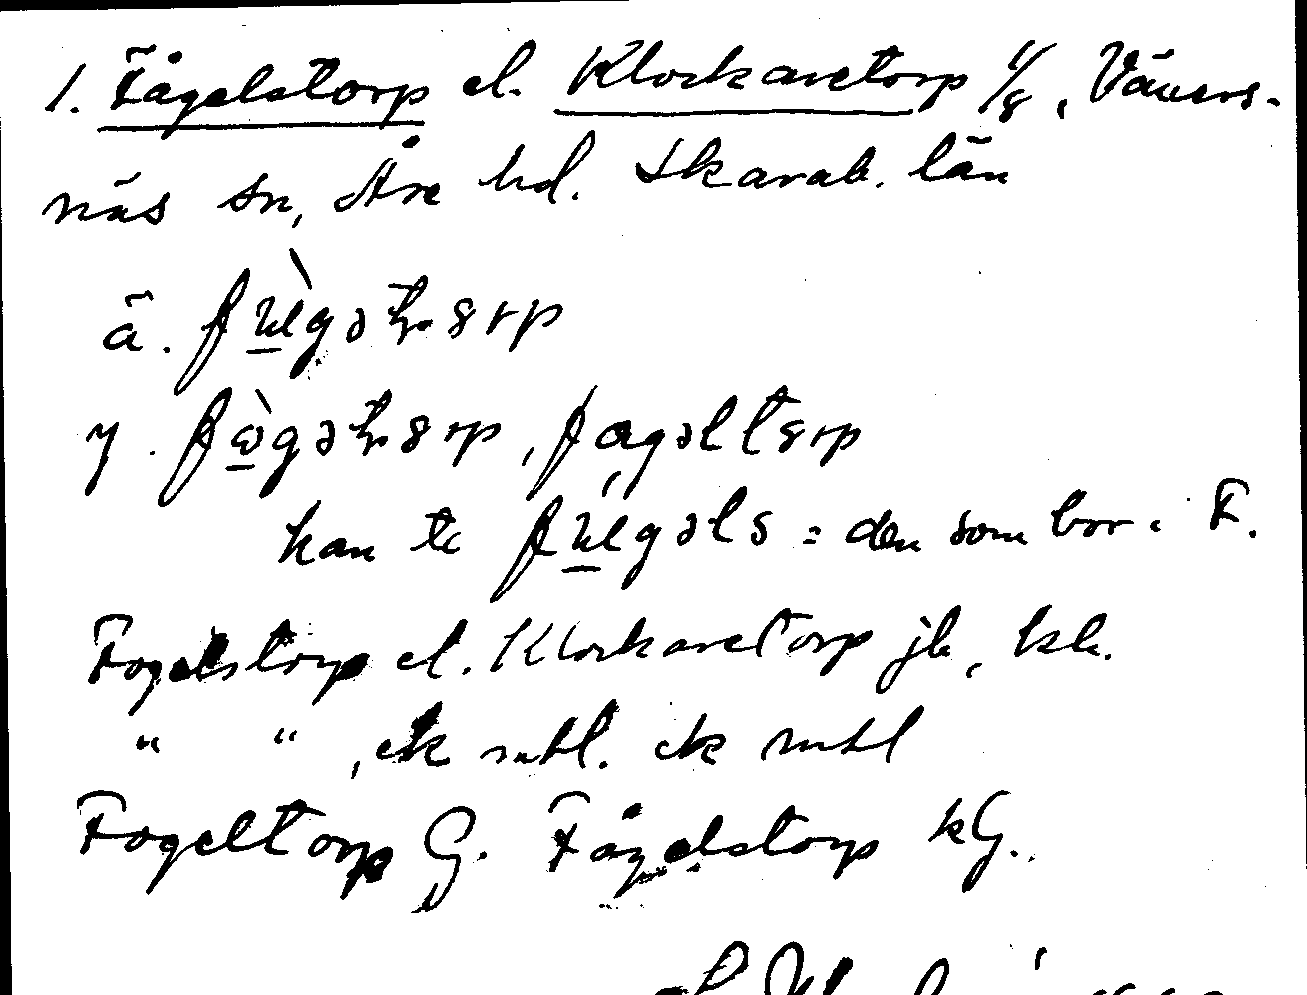 1. Fågelstorp el. Klockaretorp 1/8, Väners-
näs sn, Åse hd. Skarab. län
ä. fùgəlsorp
y. fògəlsorp, fagəltorp
han te fùgəls = den som bor i F.
Fogelstorp el. Klockaretorp jb, kk.
" " , ek
Fogeltorp G. Fågelstorp kG.